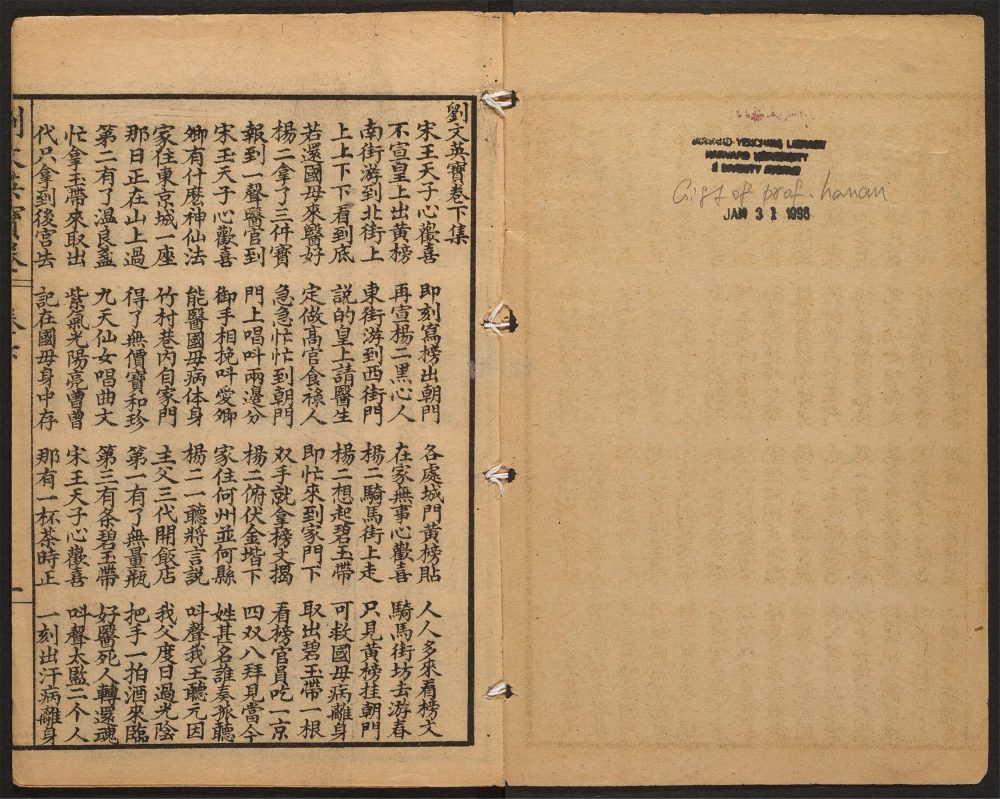 HARVARD-YENCHING LIBRARY
HARVARD UNIVERSITY
2 DIVINITY AVENUE
Gift of prof. hanan
JAN 3 1
劉文英寶卷下集
宋王天子心歡喜 即刻寫榜出朝門 各處城門黃榜貼 人人多來看榜文
不宣皇上出黃榜 再宣楊二黑心人 在家無事心歡喜 騎馬街坊去游春
南街游到北街上 東街游到西街門 楊二騎馬街上走 只見黃榜挂朝門
上上下下看到底 說的皇上請醫生 楊二想起碧玉帶 可救國毋病離身
若還國毋來醫好 定做高官食祿人 即忙來到家門下 取出碧玉帶一根
楊二拿了三件寶 急急忙忙到朝門 双手就拿榜文揭 看榜官員吃一京
報到一聲醫官到 門上唱呌兩邊分 楊二俯伏金堦下 四双八拜見當今
宋王天子心歡喜 御手相挽呌愛卿 家住何州並何縣 姓甚名誰奏孤聽
卿有什麽神仙法 能醫國毋病体身 楊二一聽將言說 呌聲我王聽元因
家住東京城一座 竹村巷內自家門 主父三代開飯店 我父度日過光陰
那日正在山上過 得了無價寶和珍 第一有了無量瓶 把手一拍酒來臨
第二有了温良盞 九天仙女唱曲文 第三有条碧玉帶 好醫死人轉還魂
忙拿玉帶來取出 紫氣光陽亮曾曾 宋王天子心歡喜 呌聲太監二个人
代只拿到後宮去 記在國毋身中存 那有一杯茶時正 一刻出汗病離身